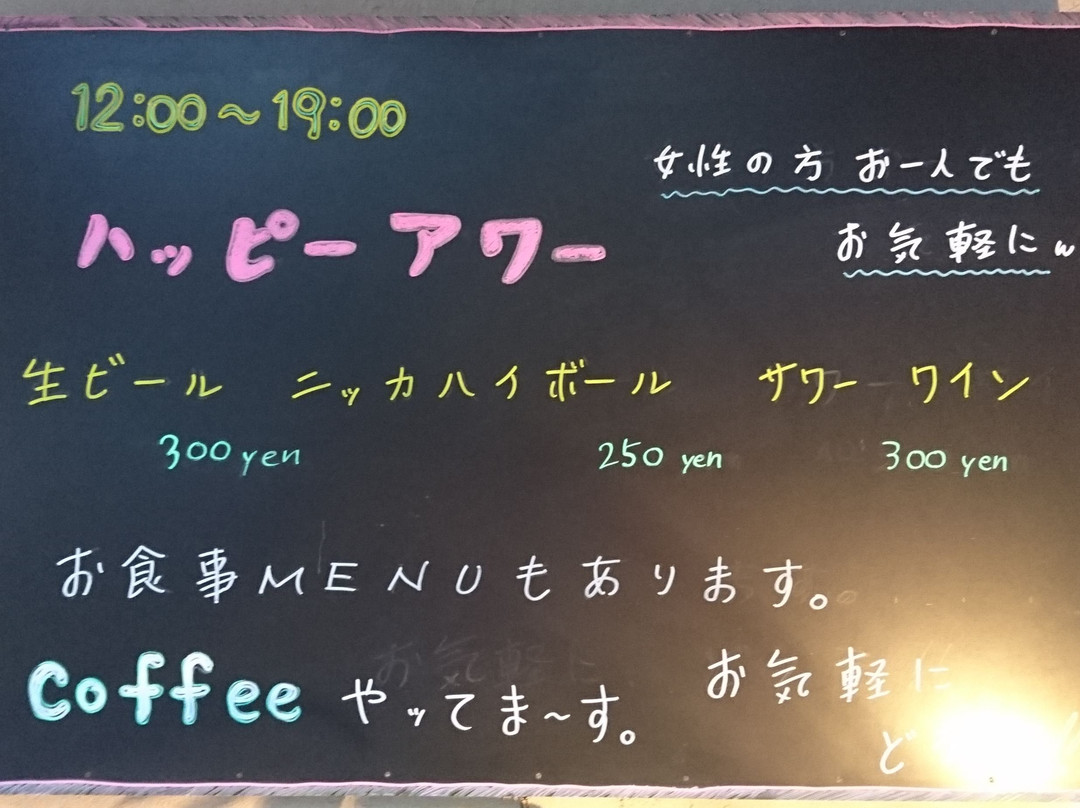 12:00～19:00
女性の方 お一人でも
お気軽にw
ハッピーアワー
生ビール ニッカハイボール サワー ワイン
300yen 250 yen 300 yen
お食事MENUもあります。
Coffee やッてま～す。
お気軽に